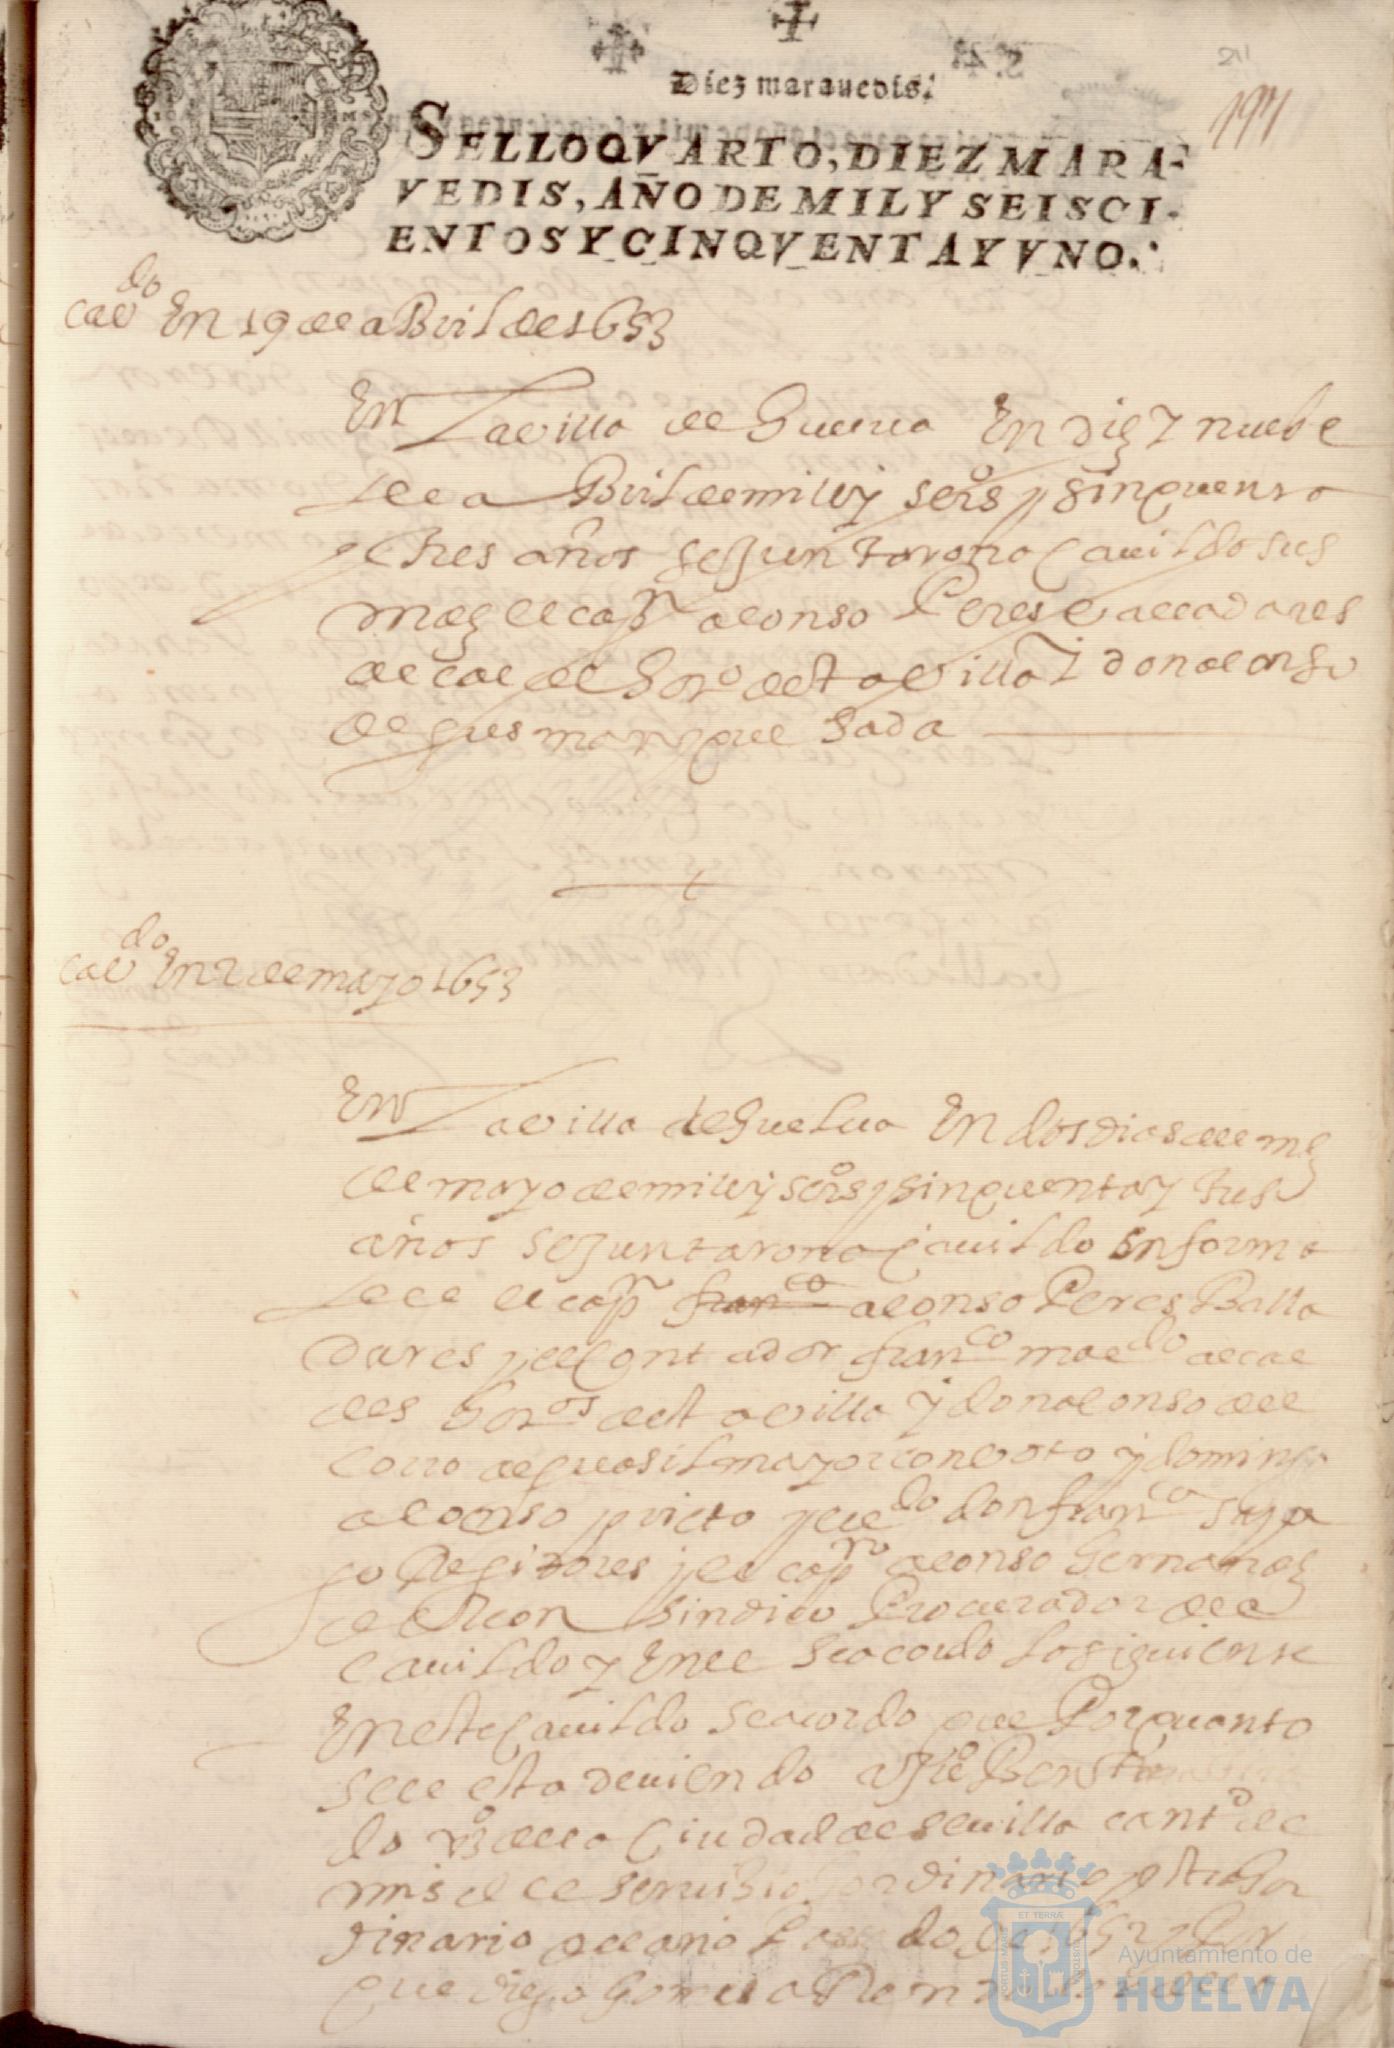 Diez maravedis.
SELLO QVARTO, DIEZ MARA-
VEDIS, AÑO DE MIL Y SEISCI-
ENTOS Y CINQVENTA Y VNO.
cavdo En 19 de aBril de 1653
En la villa de Guelva En diez y nuebe
de aBril de mill y seisos y sinquenta
y tres años se Juntaron a Cauildo sus
mds el capn alonso Peres valladares
alcalde hordo desta villa y don alonso
de gusman quesada
cavdo En 2 de mayo 1653
En la villa de Guelua En dos dias del ms
de mayo de mill y seisos y sinquenta y tres
años se Juntaron a Cauildo En forma
el capn franco alonso Peres Balla
dares y el Contador franco maldo alcal
des horos desta villa y don alonso del
corro alguasil mayor con voto y domingo
alonso prieto y el ldo don franco
Regidores y el capn alonso hernandes
de Sindico Procurador del
cauildo y En el se acordo lo siguiente
En este Cauildo se acordo que Porquanto
se le esta deuiendo a
do vo de la Ciudad de seuilla cantd de
mrs de el seruisio hordinario y estrahor
dinario del año Pasado de 1652 y Por
que diego gomes
ET TERRÆ
Ayuntamiento de
HUELVA